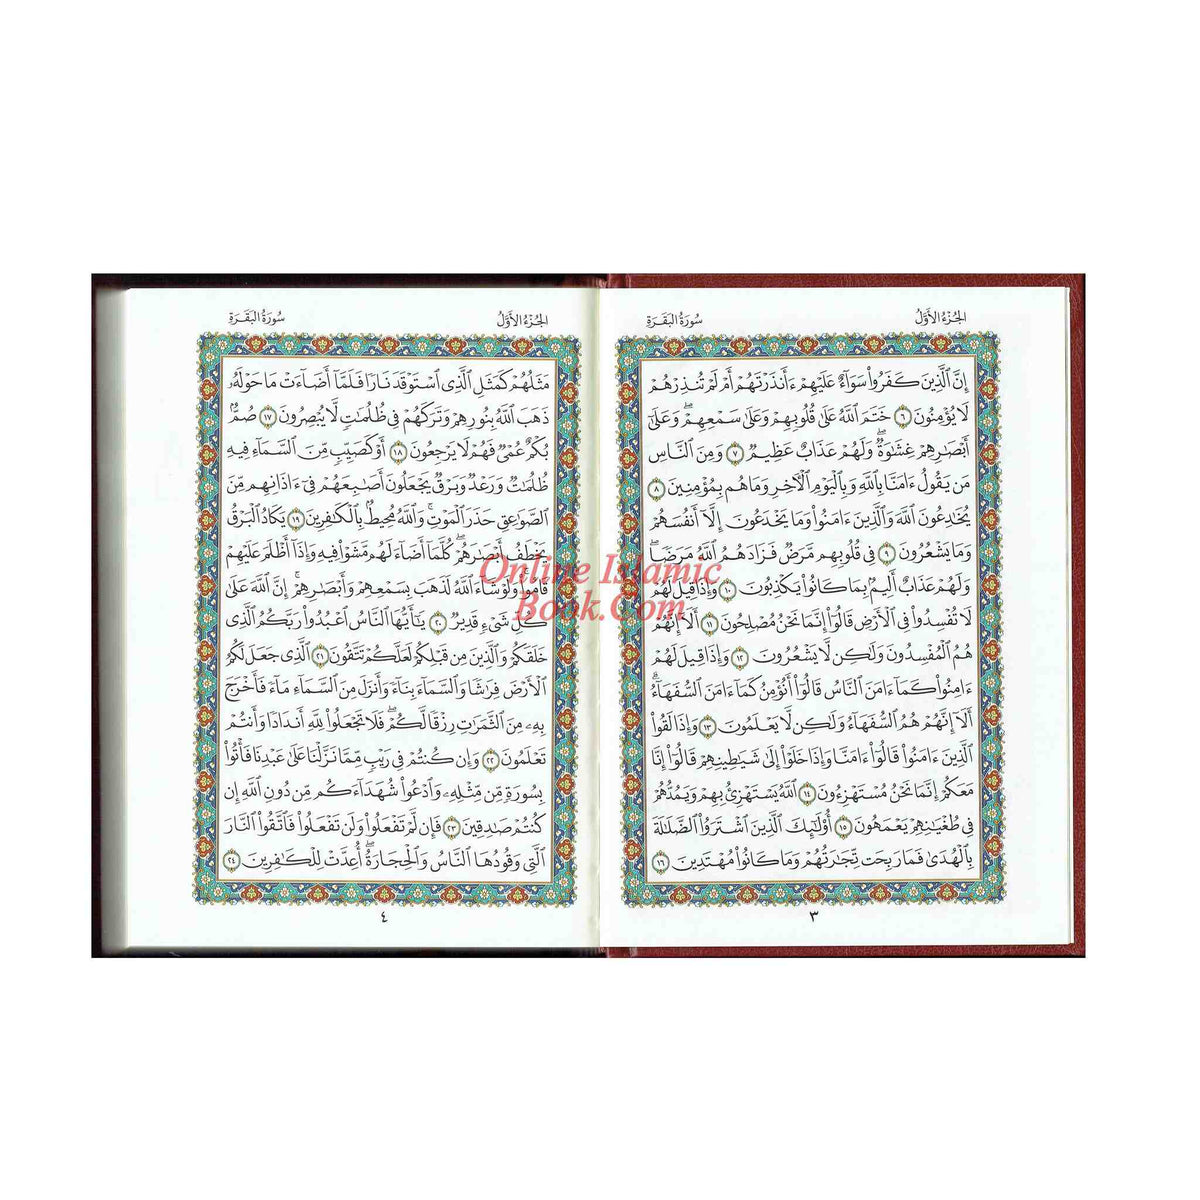 الجُزْءُ الأَوَّلُ
سُورَةُ البَقَرَةِ
إِنَّ ٱلَّذِينَ كَفَرُوا۟ سَوَآءٌ عَلَيْهِمْ ءَأَنذَرْتَهُمْ أَمْ لَمْ تُنذِرْهُمْ
لَا يُؤْمِنُونَ ٦ خَتَمَ ٱللَّهُ عَلَىٰ قُلُوبِهِمْ وَعَلَىٰ سَمْعِهِمْ ۖ وَعَلَىٰٓ
أَبْصَـٰرِهِمْ غِشَـٰوَةٌ ۖ وَلَهُمْ عَذَابٌ عَظِيمٌ ٧ وَمِنَ ٱلنَّاسِ
مَن يَقُولُ ءَامَنَّا بِٱللَّهِ وَبِٱلْيَوْمِ ٱلْءَاخِرِ وَمَا هُم بِمُؤْمِنِينَ ٨
يُخَـٰدِعُونَ ٱللَّهَ وَٱلَّذِينَ ءَامَنُوا۟ وَمَا يَخْدَعُونَ إِلَّآ أَنفُسَهُمْ
وَمَا يَشْعُرُونَ ٩ فِى قُلُوبِهِم مَّرَضٌ فَزَادَهُمُ ٱللَّهُ مَرَضًا ۖ
وَلَهُمْ عَذَابٌ أَلِيمٌۢ بِمَا كَانُوا۟ يَكْذِبُونَ ١٠ وَإِذَا قِيلَ لَهُمْ
لَا تُفْسِدُوا۟ فِى ٱلْأَرْضِ قَالُوٓا۟ إِنَّمَا نَحْنُ مُصْلِحُونَ ١١ أَلَآ إِنَّهُمْ
هُمُ ٱلْمُفْسِدُونَ وَلَـٰكِن لَّا يَشْعُرُونَ ١٢ وَإِذَا قِيلَ لَهُمْ
ءَامِنُوا۟ كَمَآ ءَامَنَ ٱلنَّاسُ قَالُوٓا۟ أَنُؤْمِنُ كَمَآ ءَامَنَ ٱلسُّفَهَآءُ ۗ
أَلَآ إِنَّهُمْ هُمُ ٱلسُّفَهَآءُ وَلَـٰكِن لَّا يَعْلَمُونَ ١٣ وَإِذَا لَقُوا۟
ٱلَّذِينَ ءَامَنُوا۟ قَالُوٓا۟ ءَامَنَّا وَإِذَا خَلَوْا۟ إِلَىٰ شَيَـٰطِينِهِمْ قَالُوٓا۟ إِنَّا
مَعَكُمْ إِنَّمَا نَحْنُ مُسْتَهْزِءُونَ ١٤ ٱللَّهُ يَسْتَهْزِئُ بِهِمْ وَيَمُدُّهُمْ
فِى طُغْيَـٰنِهِمْ يَعْمَهُونَ ١٥ أُو۟لَـٰٓئِكَ ٱلَّذِينَ ٱشْتَرَوُا۟ ٱلضَّلَـٰلَةَ
بِٱلْهُدَىٰ فَمَا رَبِحَت تِّجَـٰرَتُهُمْ وَمَا كَانُوا۟ مُهْتَدِينَ ١٦
٣
الجُزْءُ الأَوَّلُ
سُورَةُ البَقَرَةِ
مَثَلُهُمْ كَمَثَلِ ٱلَّذِى ٱسْتَوْقَدَ نَارًا فَلَمَّآ أَضَآءَتْ مَا حَوْلَهُۥ
ذَهَبَ ٱللَّهُ بِنُورِهِمْ وَتَرَكَهُمْ فِى ظُلُمَـٰتٍ لَّا يُبْصِرُونَ ١٧ صُمٌّۢ
بُكْمٌ عُمْىٌ فَهُمْ لَا يَرْجِعُونَ ١٨ أَوْ كَصَيِّبٍ مِّنَ ٱلسَّمَآءِ فِيهِ
ظُلُمَـٰتٌ وَرَعْدٌ وَبَرْقٌ يَجْعَلُونَ أَصَـٰبِعَهُمْ فِىٓ ءَاذَانِهِم مِّنَ
ٱلصَّوَٰعِقِ حَذَرَ ٱلْمَوْتِ ۚ وَٱللَّهُ مُحِيطٌۢ بِٱلْكَـٰفِرِينَ ١٩ يَكَادُ ٱلْبَرْقُ
يَخْطَفُ أَبْصَـٰرَهُمْ ۖ كُلَّمَآ أَضَآءَ لَهُم مَّشَوْا۟ فِيهِ وَإِذَآ أَظْلَمَ عَلَيْهِمْ
قَامُوا۟ ۚ وَلَوْ شَآءَ ٱللَّهُ لَذَهَبَ بِسَمْعِهِمْ وَأَبْصَـٰرِهِمْ ۚ إِنَّ ٱللَّهَ عَلَىٰ
كُلِّ شَىْءٍ قَدِيرٌ ٢٠ يَـٰٓأَيُّهَا ٱلنَّاسُ ٱعْبُدُوا۟ رَبَّكُمُ ٱلَّذِى
خَلَقَكُمْ وَٱلَّذِينَ مِن قَبْلِكُمْ لَعَلَّكُمْ تَتَّقُونَ ٢١ ٱلَّذِى جَعَلَ لَكُمُ
ٱلْأَرْضَ فِرَٰشًا وَٱلسَّمَآءَ بِنَآءً وَأَنزَلَ مِنَ ٱلسَّمَآءِ مَآءً فَأَخْرَجَ
بِهِۦ مِنَ ٱلثَّمَرَٰتِ رِزْقًا لَّكُمْ ۖ فَلَا تَجْعَلُوا۟ لِلَّهِ أَندَادًا وَأَنتُمْ
تَعْلَمُونَ ٢٢ وَإِن كُنتُمْ فِى رَيْبٍ مِّمَّا نَزَّلْنَا عَلَىٰ عَبْدِنَا فَأْتُوا۟
بِسُورَةٍ مِّن مِّثْلِهِۦ وَٱدْعُوا۟ شُهَدَآءَكُم مِّن دُونِ ٱللَّهِ إِن
كُنتُمْ صَـٰدِقِينَ ٢٣ فَإِن لَّمْ تَفْعَلُوا۟ وَلَن تَفْعَلُوا۟ فَٱتَّقُوا۟ ٱلنَّارَ
ٱلَّتِى وَقُودُهَا ٱلنَّاسُ وَٱلْحِجَارَةُ ۖ أُعِدَّتْ لِلْكَـٰفِرِينَ ٢٤
٤
Online Islamic
Book.Com